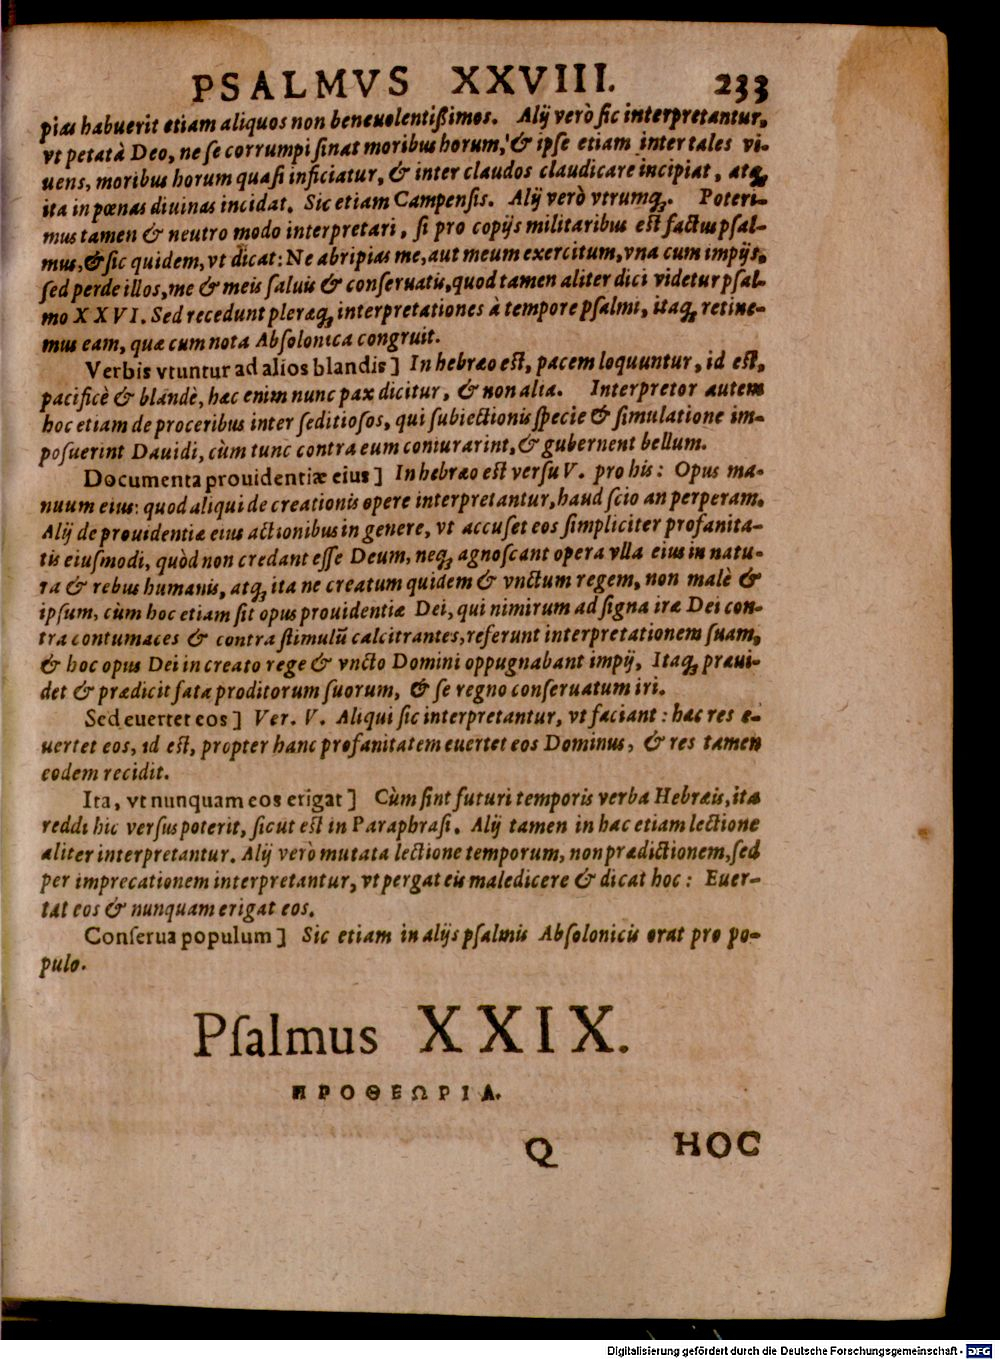 PSALMVS XXVIII. 233
pias habuerit etiam aliquos non beneuolentißimos. Alij verò ſic interpretantur,
vt petat à Deo, ne ſe corrumpi ſinat moribus horum, & ipſe etiam inter tales vi-
uens, moribus horum quaſi inficiatur, & inter claudos claudicare incipiat, atq;
ita in pœnas diuinas incidat. Sic etiam Campenſis. Alij verò vtrumq;. Poteri-
mus tamen & neutro modo interpretari, ſi pro copijs militaribus eſt factus pſal-
mus, & ſic quidem, vt dicat: Ne abripias me, aut meum exercitum, vna cum impijs,
ſed perde illos, me & meis ſaluis & conſeruatis, quod tamen aliter dici videtur pſal-
mo XXVI. Sed recedunt pleræq; interpretationes à tempore pſalmi, itaq; retine-
mus eam, quæ cum nota Abſolonica congruit.
Verbis vtuntur ad alios blandis] In hebræo eſt, pacem loquuntur, id eſt,
pacificè & blandè, hæc enim nunc pax dicitur, & non alia. Interpretor autem
hoc etiam de proceribus inter ſeditioſos, qui ſubiectionis ſpecie & ſimulatione im-
poſuerint Dauidi, cùm tunc contra eum coniurarint, & gubernent bellum.
Documenta prouidentiæ eius] In hebræo eſt verſu V. pro his: Opus ma-
nuum eius: quod aliqui de creationis opere interpretantur, haud ſcio an perperam.
Alij de prouidentia eius actionibus in genere, vt accuſet eos ſimpliciter profanita-
tis eiuſmodi, quòd non credant eſſe Deum, neq; agnoſcant opera vlla eius in natu-
ra & rebus humanis, atq; ita ne creatum quidem & vnctum regem, non malè &
ipſum, cùm hoc etiam ſit opus prouidentiæ Dei, qui nimirum ad ſigna iræ Dei con-
tra contumaces & contra ſtimulũ calcitrantes, referunt interpretationem ſuam,
& hoc opus Dei in creato rege & vncto Domini oppugnabant impij, Itaq; præui-
det & prædicit fata proditorum ſuorum, & ſe regno conſeruatum iri.
Sed euertet eos] Ver. V. Aliqui ſic interpretantur, vt faciant: hæc res e-
uertet eos, id eſt, propter hanc profanitatem euertet eos Dominus, & res tamen
eodem recidit.
Ita, vt nunquam eos erigat] Cùm ſint futuri temporis verba Hebræis, ita
reddi hic verſus poterit, ſicut eſt in Paraphraſi. Alij tamen in hac etiam lectione
aliter interpretantur. Alij verò mutata lectione temporum, non prædictionem, ſed
per imprecationem interpretantur, vt pergat eis maledicere & dicat hoc: Euer-
tat eos & nunquam erigat eos.
Conſerua populum] Sic etiam in alijs pſalmis Abſolonicis orat pro po-
pulo.
Pſalmus XXIX.
ΠΡΟΘΕΩΡΙΑ.
Q HOC
Digitalisierung gefördert durch die Deutsche Forschungsgemeinschaft - DFG